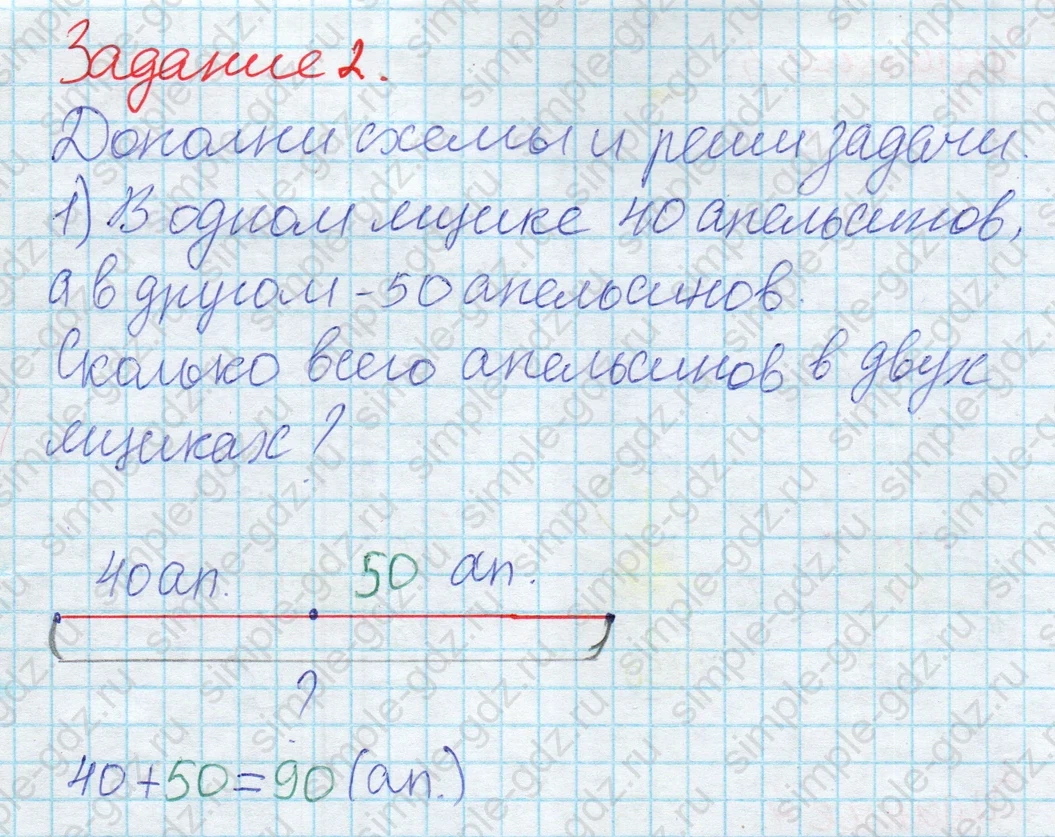 Задание 2.
Дополни схемы и реши задачи.
1) В одном ящике 40 апельсинов,
а в другом - 50 апельсинов.
Сколько всего апельсинов в двух
ящиках?
40 ап. 50 ап.
?
40+50=90 (ап.)
simple-gdz.ru